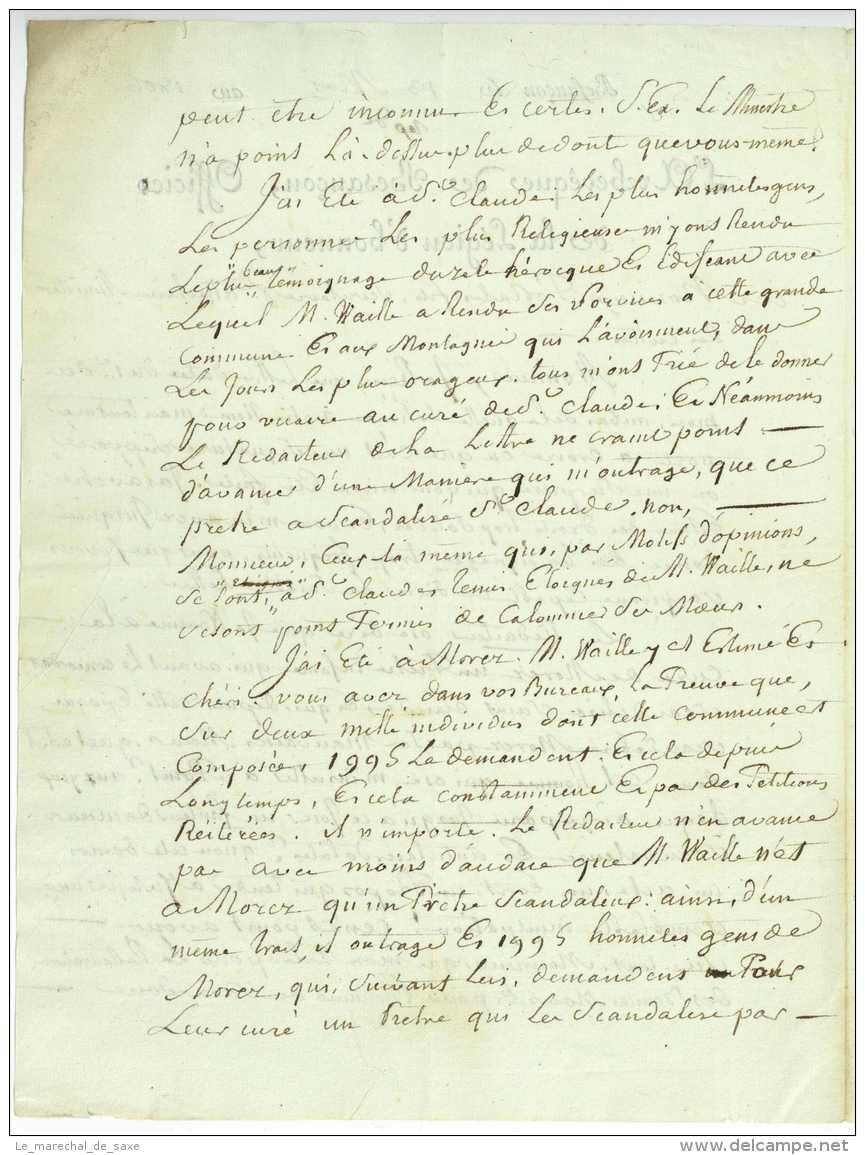 peut être inconnu. Et certes, S. Ex. Le Ministre
n'a point Là-dessus plus de doute que vous-même.
J'ai Eté à St. Claude: Les plus honnêtes gens,
Les personnes Les plus Religieuses m'y ont Rendu
Le plus beau témoignage du zele héroeque Et Edifiant avec
Lequel M. Waille a Rendu des services à cette grande
Commune Et aux Montagnes qui L'avoisinent, dans
Les Jours Les plus orageux. tous m'ont Prié de le donner
pour vicaire au curé de St. Claude; Et Néanmoins
Le Rédacteur de la Lettre ne craint point —
d'avancer d'une Manière qui m'outrage, que ce
prêtre a Scandalisé St. Claude. non, —
Monsieur, Ceux-là même qui, par Motifs d'opinions,
se sont, à St. Claude tenus Eloignés de M. Waille, ne
se sont point Permis de Calomnier ses Mœurs.
J'ai Eté à Morez. M. Waille y est Estimé Et
chéri. vous avez dans vos Bureaux, La Preuve que,
sur deux mille individus dont cette Commune est
Composée, 1995 Le demandent: Et cela depuis
Longtemps, Et cela constamment Et par des Petitions
Réitérées. il n'importe. Le Redacteur n'en avance
pas avec moins d'audace que M. Waille n'est
à Morez qu'un Prêtre Scandaleux: ainsi, d'un
meme trait, il outrage Et 1995 honnetes gens de
Morez, qui, suivant Lui, demandent Pour
Leur curé un Prêtre qui Les Scandalise par —
Le_marechal_de_saxe
delcampe.net